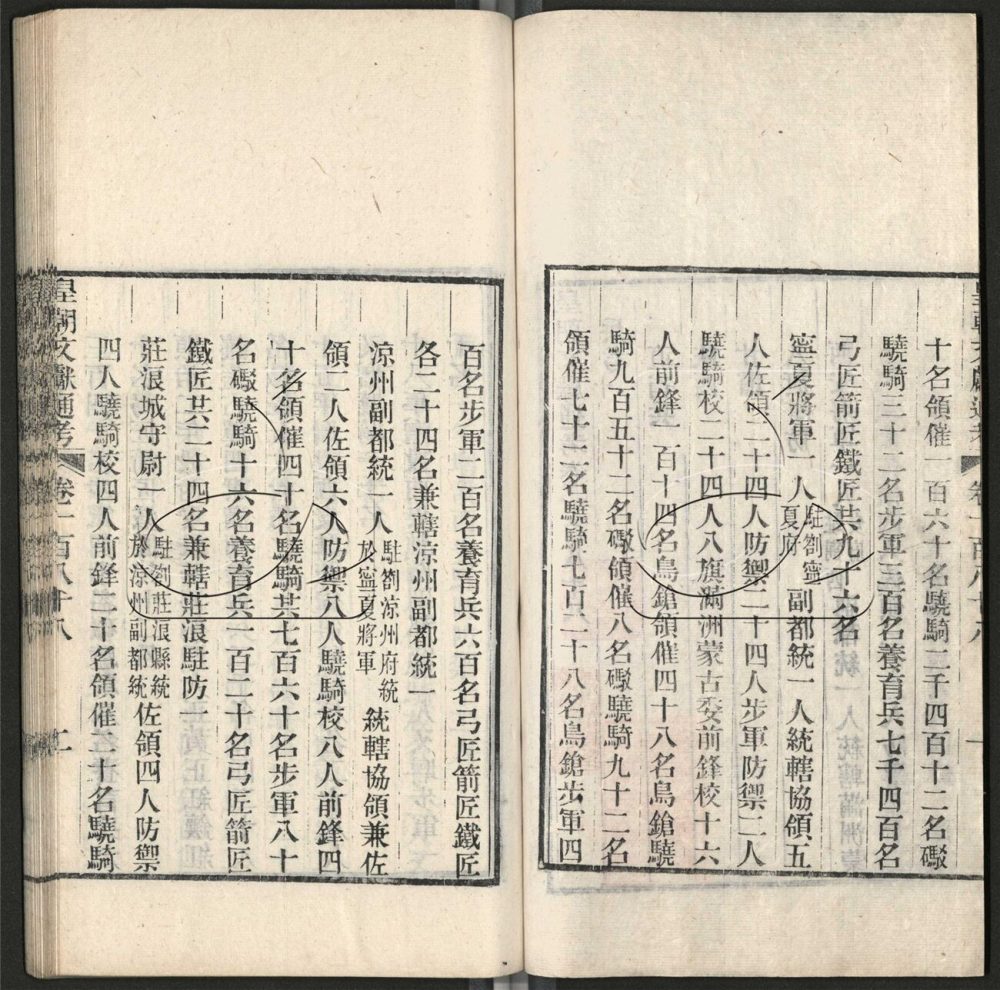 十名領催一百六十名驍騎二千四百十二名礮
驍騎三十二名步軍三百名養育兵七千四百名
弓匠箭匠鐵匠共九十六名
寧夏將軍一人駐劄寧夏府副都統一人統轄協領五
人佐領二十四人防禦二十四人步軍防禦二人
驍騎校二十四人八旗滿洲蒙古委前鋒校十六
人前鋒一百十四名鳥鎗領催四十八名鳥鎗驍
騎九百五十二名礮領催八名礮驍騎九十二名
領催七十二名驍騎七百二十八名鳥鎗步軍四
百名步軍二百名養育兵六百名弓匠箭匠鐵匠
各二十四名兼轄涼州副都統一
涼州副都統一人駐劄涼州府統於寧夏將軍統轄協領兼佐
領二人佐領六人防禦八人驍騎校八人前鋒四
十名領催四十名驍騎共七百六十名步軍八十
名礮驍騎十六名養育兵一百二十名弓匠箭匠
鐵匠共二十四名兼轄莊浪駐防一
莊浪城守尉一人駐劄莊浪縣統於涼州副都統佐領四人防禦
四人驍騎校四人前鋒二十名領催二十名驍騎
皇朝文獻通考 卷一百八十八 二